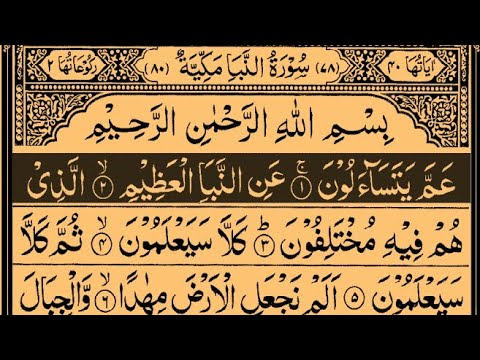 اٰیَاتُهَا ۴۰ (۷۸) سُوْرَةُ النَّبَاِ مَكِّیَّةٌ (۸۰) رُكُوْعَاتُهَا ۲
بِسْمِ اللّٰهِ الرَّحْمٰنِ الرَّحِیْمِ
عَمَّ یَتَسَآءَلُوْنَ ۚ۝۱ عَنِ النَّبَاِ الْعَظِیْمِ ۙ۝۲ الَّذِیْ
هُمْ فِیْهِ مُخْتَلِفُوْنَ ؕ۝۳ كَلَّا سَیَعْلَمُوْنَ ۙ۝۴ ثُمَّ كَلَّا
سَیَعْلَمُوْنَ ۝۵ اَلَمْ نَجْعَلِ الْاَرْضَ مِهٰدًا ۙ۝۶ وَّالْجِبَالَ